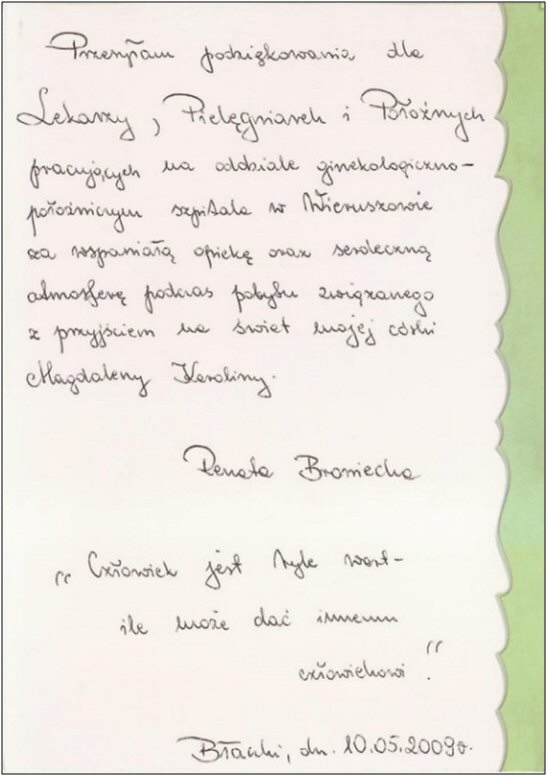 Przesyłam podziękowania dla
Lekarzy, Pielęgniarek i Położnych
pracujących na oddziale ginekologiczno-
położniczym szpitala w Wieruszowie
za wspaniałą opiekę oraz serdeczną
atmosferę podczas pobytu związanego
z przyjściem na świat mojej córki
Magdaleny Karoliny.
Renata Broniecka
„Człowiek jest tyle wart-
ile może dać innemu
człowiekowi."
dn. 10.05.2009r.